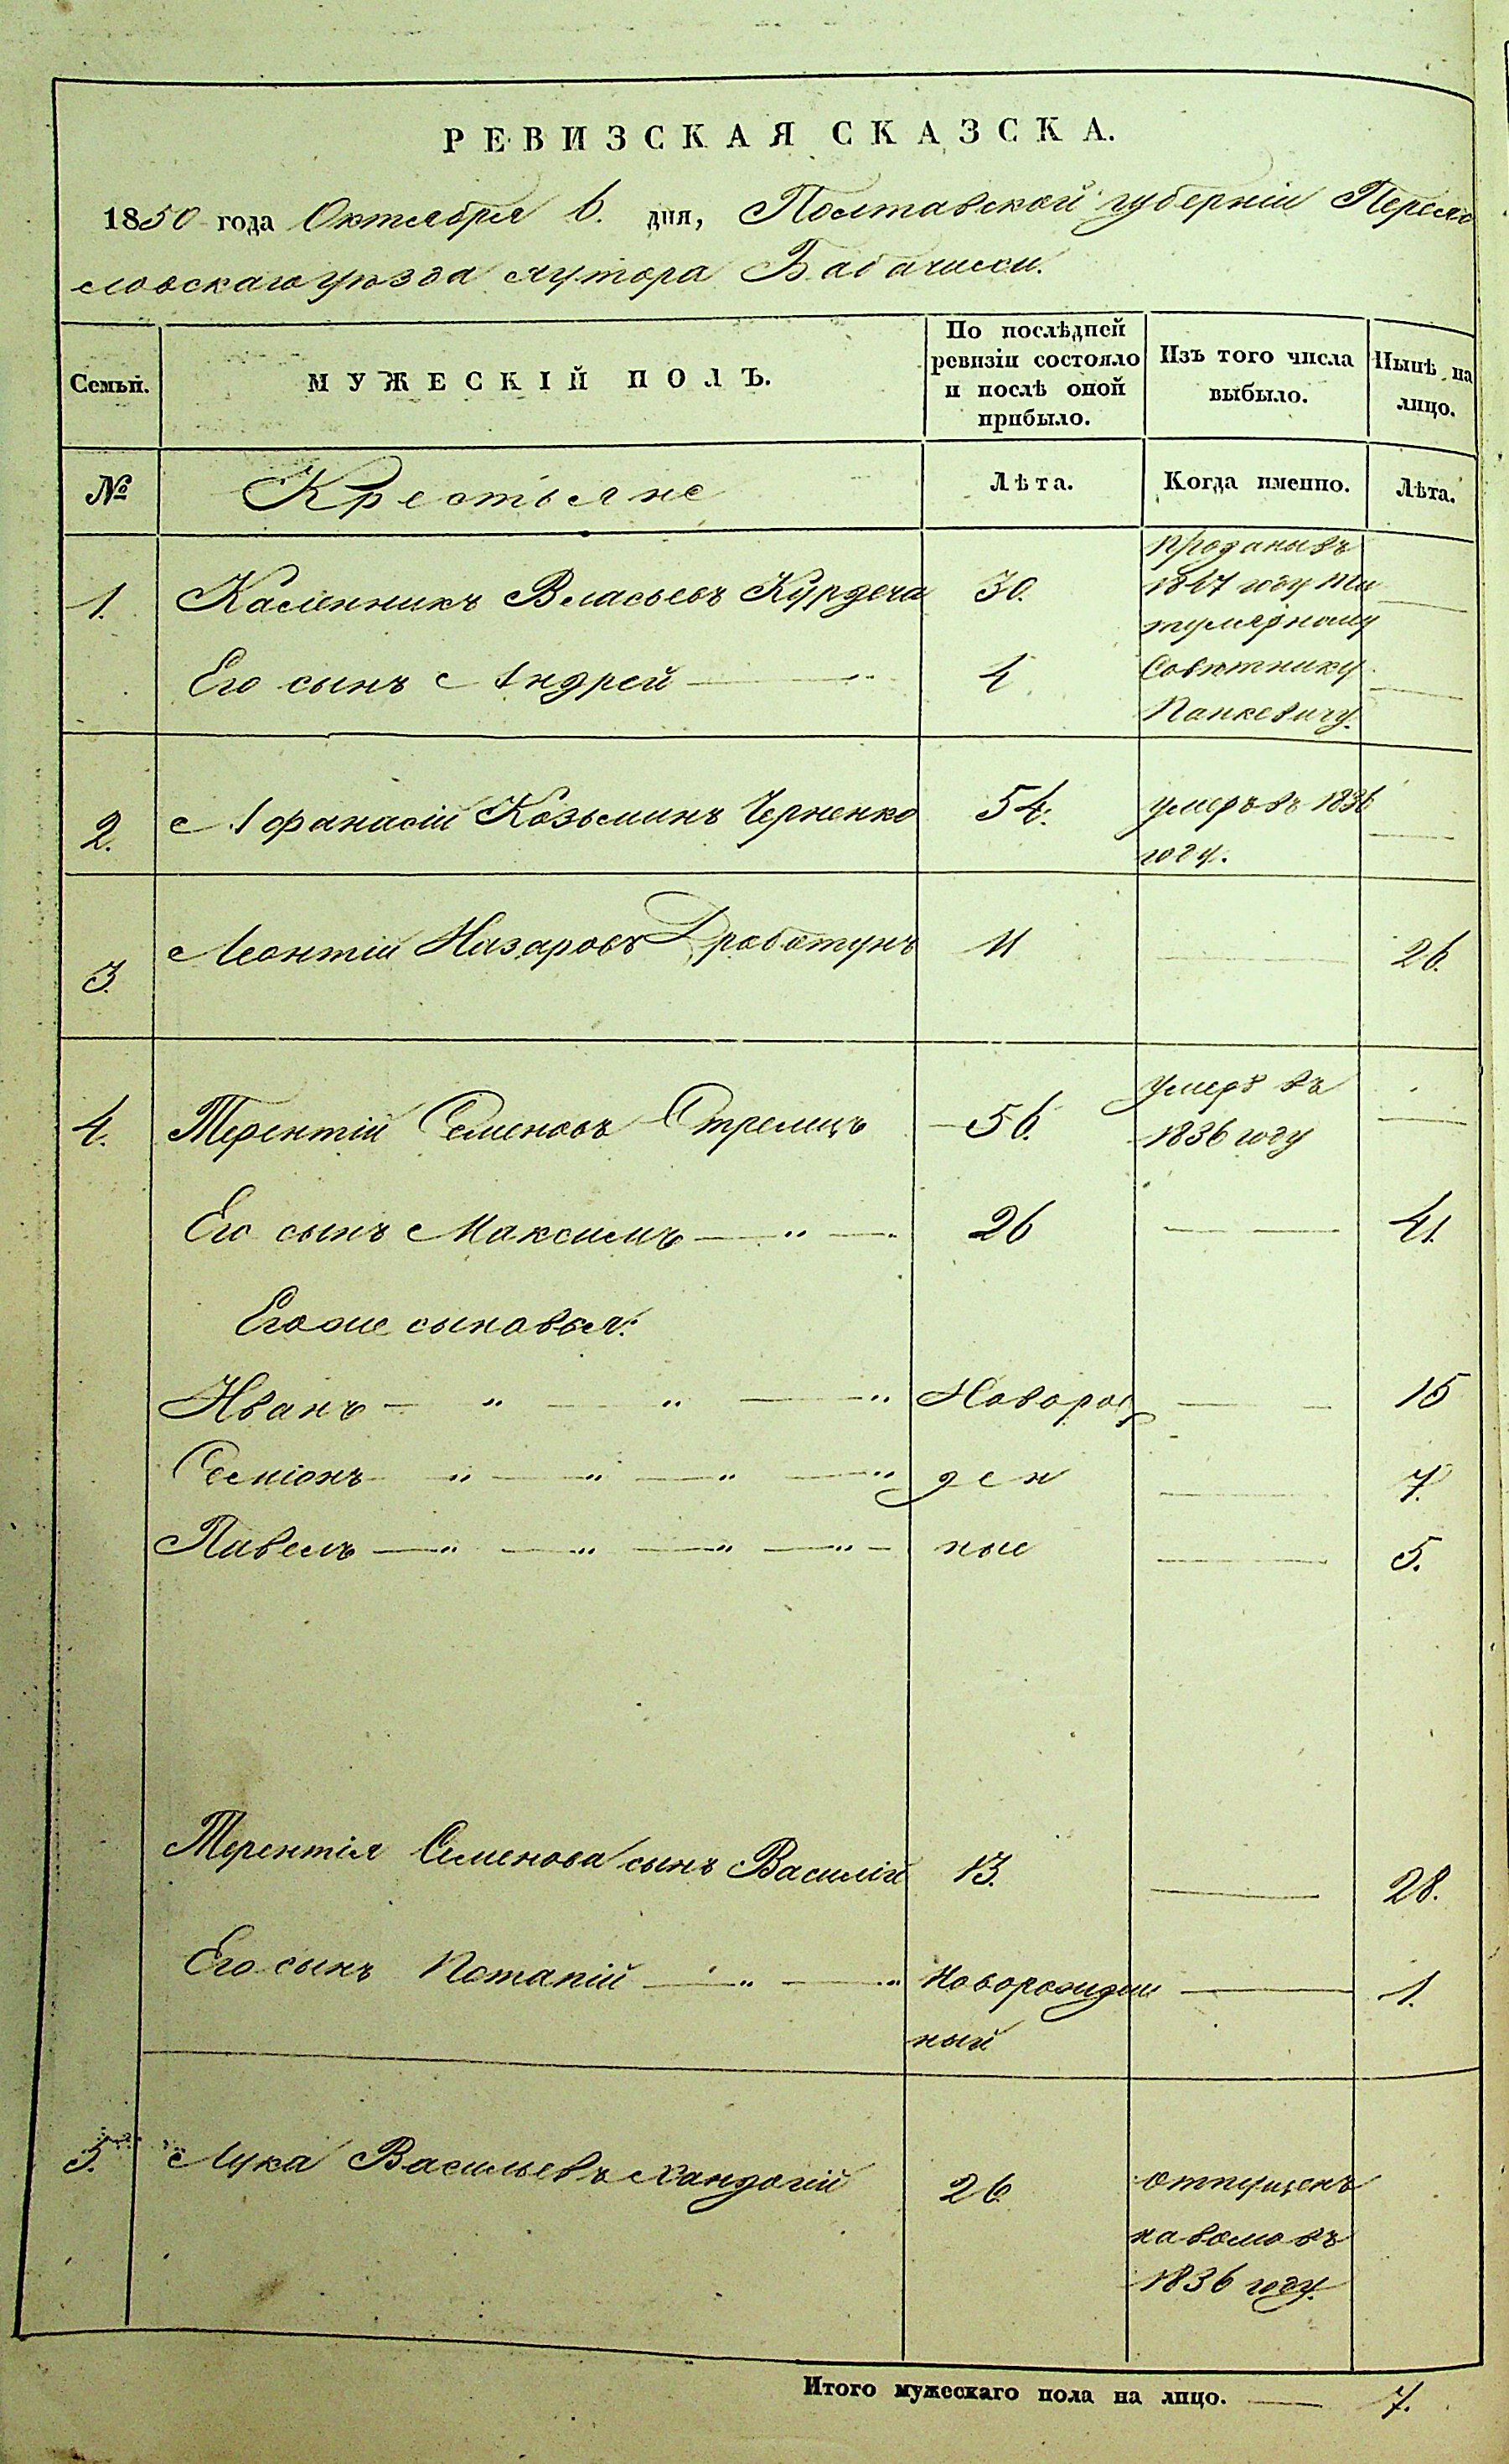 РЕВИЗСКАЯ СКАЗСКА.
1850 года Октября 6. дня, Полтавской губерніи Переяс
ловскаго уѣзда хутора
Семьи.
МУЖЕСКІЙ ПОЛЪ.
По послѣдней ревизіи состояло и послѣ оной прибыло.
Изъ того числа выбыло.
Нынѣ на лицо.
№
Крестьяне
Лѣта.
Когда именно.
Лѣта.
1. Каленникъ Власьевъ Курдеча 30. проданы въ
1847 году ти
тулярному
Его сынъ Андрей 4 Совѣтнику
Панкевичу.
2. Афанасій Козьминъ Черненко 54. умеръ въ 1836
году.
3. Леонтій Назаровъ Дроботунъ 11 26.
4. Терентій Семеновъ Стрелецъ 56. умеръ въ
1836 году
Его сынъ Максимъ 26 41.
Его же сыновья:
Иванъ Новорож 15
Семіонъ ден 7.
Павелъ ные 5.
Терентія Семенова сынъ Василій 13. 28.
Его сынъ Потапій Новорожден 1.
ный
5. Лука Васильевъ Хандогій 26. отпущенъ
на волю въ
1836 году.
Итого мужескаго пола на лицо. 7.